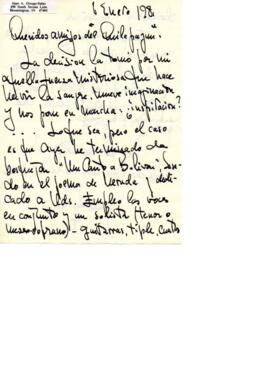 Juan A. Orrego-Salas
Bloomington, IN 47401
6 Enero 198
Queridos amigos del Quilapayun:
La decision la tomó por mi
aquella fuerza misteriosa que hace
hervir la sangre, mueve imaginación
y nos pone en marcha: inspiración?
... Lo que sea, pero el caso
es que ayer he terminado de
bosquejar "Un Canto a Bolivar", basa-
do en el poema de Neruda y dedi-
cado a Uds. Empleo las voces
en conjunto y un solista (tenor o
mezzosoprano) - guitarras, tiple, cuatro